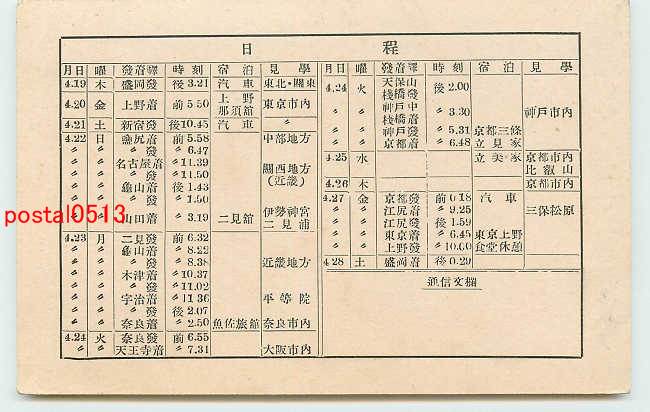 日 程
月日 曜 發着驛 時刻 宿泊 見學
4.19 木 盛岡發 後3.21 汽車 東北・關東
4.20 金 上野着 前5.50 上野那須舘 東京市内
4.21 土 新宿發 後10.45 汽車 〃
4.22 日 鹽尻着 前5.58 中部地方
〃 〃 〃發 〃6.47
〃 〃 名古屋着 〃11.39 關西地方(近畿)
〃 〃 〃發 〃11.50
〃 〃 龜山着 後1.43
〃 〃 〃發 〃1.50
〃 〃 山田着 〃3.19 二見舘 伊勢神宮二見浦
4.23 月 二見發 前6.32
〃 〃 龜山着 〃8.22
〃 〃 〃發 〃8.38 近畿地方
〃 〃 木津着 〃10.37
〃 〃 〃發 〃11.02
〃 〃 宇治着 〃11.36 平等院
〃 〃 〃發 後2.07
〃 〃 奈良着 〃2.50 魚佐旅舘 奈良市内
4.24 火 奈良發 前6.55
〃 〃 天王寺着 〃7.31 大阪市内
月日 曜 發着驛 時刻 宿泊 見學
4.24 火 天保山棧橋發 後2.00
〃 〃 神戸中棧橋着 〃3.30 神戸市内
〃 〃 神戸發 〃5.31 京都三條
〃 〃 京都着 〃6.48 立見家
4.25 水 立美家 京都市内比叡山
4.26 木 京都市内
4.27 金 京都發 前0.18 汽車
〃 〃 江尻着 〃9.25 三保松原
〃 〃 江尻發 後1.59
〃 〃 東京着 〃6.45 東京上野
〃 〃 上野發 〃10.00 食堂休憩
4.28 土 盛岡着 後0.29
通信文欄
postal0513